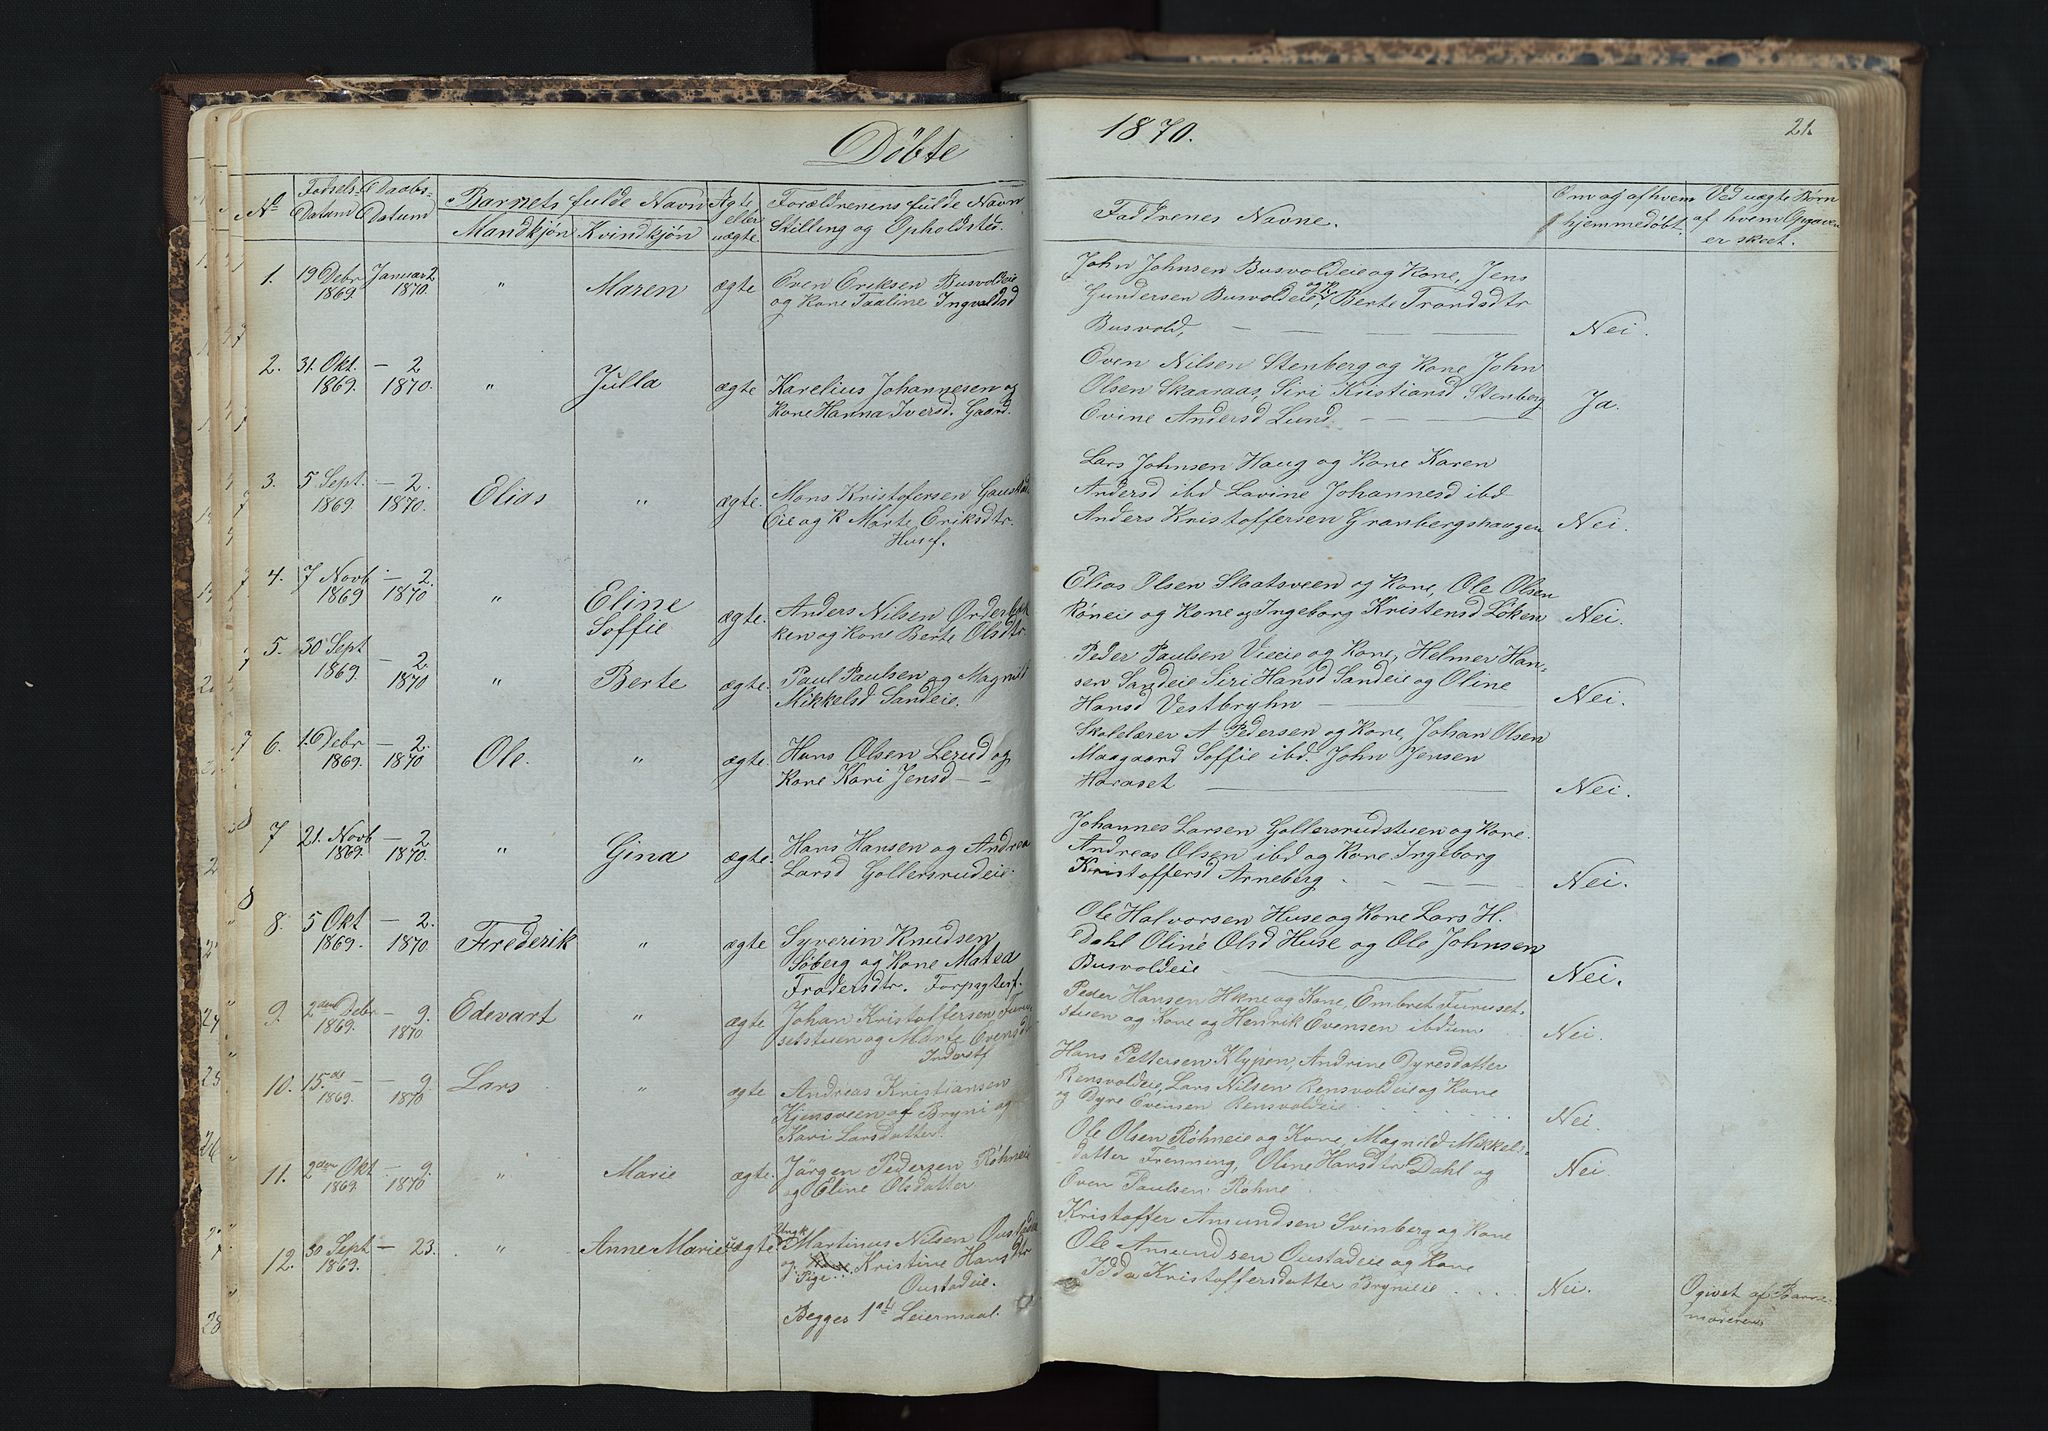 Döbte 1870. 21.
No Födsels Datum Daabs- Datum Barnets fulde Navn Mandkjön Kvindkjön Ægte eller uægte. Forældrenens fulde Navn Stilling og Opholdsted. Faddrenes Navne. Om og af hvem hjemmedöbt. Ved uægte Börn af hvem Opgaven er skeet.
1. 19 Debr 1869. Januar 2 1870. " Maren ægte Even Eriksen Busvoldeie
og Kone Taaline Ingvaldsd
John Johnsen Busvoldeie og Kone, Jens
Gundersen Busvoldeie og K, Berte Trondsdtr
Busvold, Nei.
2. 31. Okt. 1869. – 2 1870. " Julla ægte Karelius Johannesen og
Kone Hanna Iversd. Gaard.
Even Nilsen Stenberg og Kone John
Olsen Skaaraas, Siri Kristiansd Stenberg
Ovine Andersd Lund Ja.
3. 5 Sept. 1869. – 2. 1870. Elias " ægte. Mons Kristofersen
Eie og K Marte Eriksdtr.
Husf.
Lars Johnsen Haug og Kone Karen
Andersd ibd Lavine Johannesd ibd
Anders Kristoffersen Granbergshaugen Nei.
4. 7 Novb 1869 – 2. 1870 " Eline Soffie ægte. Anders Nilsen
ken og Kone Berte Olsdtr.
Elias Olsen Slaatsveen og Kone, Ole Olsen
Röneie og Kone og Ingeborg Kristensd Löken Nei.
5. 30 Sept 1869. – 2. 1870 " Berte ægte. Paul Paulsen og Magnild
Mikkelsd Sandeie.
Peder Paulsen Vieeie og Kone, Helmer Han-
sen Sandeie Siri Hansd Sandeie og Oline
Hansd Vestbryhn Nei.
6. 16 Debr 1869. – 2. 1870 Ole. " ægte. Hans Olsen Lerud og
Kone Kari Jensd – –
Skolelærer A Pedersen og Kone, Johan Olsen
Maagaard Soffie ibd. John Jensen
Haraset Nei.
7 21. Novb 1869. – 2. 1870. " Gina ægte. Hans Hansen og Andrea
Larsd Gollersrudeie.
Johannes Larsen Gollersrudstuen og Kone.
Andreas Olsen ibd og Kone Ingeborg
Kristoffersd Arneberg Nei.
8. 5 Okt 1869. – 2. 1870. Frederik " ægte. Syverin Knudsen
Söberg og Kone Matea
Frodersdtr. Forpagterf.
Ole Halvorsen Huse og Kone Lars H.
Dahl Oline Olsd Huse og Ole Johnsen
Busvoldeie Nei.
9. 2den Debr 1869. – 9. 1870 Edevart " ægte Johan Kristoffersen
setstuen og Marte Evensdtr
Inderstf
Peder Hansen Hkne og Kone, Embret Furuset-
stuen og Kone og Henrik Evensen ibdum Nei.
10. 15.de – 1869. – 9. 1870 Lars " ægte Andreas Kristiansen
Kjensveen af Bryni og
Kari Larsdatter.
Hans Pettersen Klypen, Andrine Dyresdatter
Rensvoldeie, Lars Nilsen Rensvoldeie og Kone
og Dyre Evensen Rensvoldeie Nei.
11. 2den Okt 1869. – 9. 1870 " Marie ægte. Jörgen Pedersen Röhneie
og Eline Olsdatter
Ole Olsen Röhneie og Kone, Magnild Mikkels-
datter Frenning, Oline Hansdtr Dahl og
Even Paulsen Röhne Nei.
12. 30 Sept 1869. – 23. " Anne Marie uægte Ungk Martinus Nilsen
og Kone Pige Kristine Hansdtr
Oustadeie.
Begges 1ste Leiermaal.
Kristoffer Amundsen Svinberg og Kone
Ole Amundsen Oustadeie og Kone
Idda Kristoffersdatter Brynieie Nei. Ogivet af Barne-
moderens